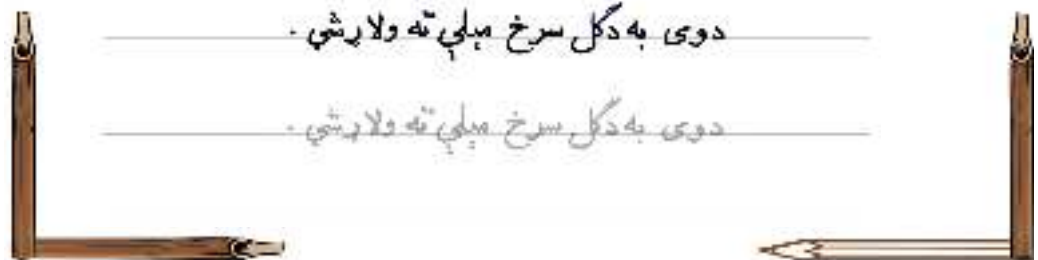 دوی به دګل سرخ مېلې ته ولاړشي .
دوی به دګل سرخ مېلې ته ولاړشي .